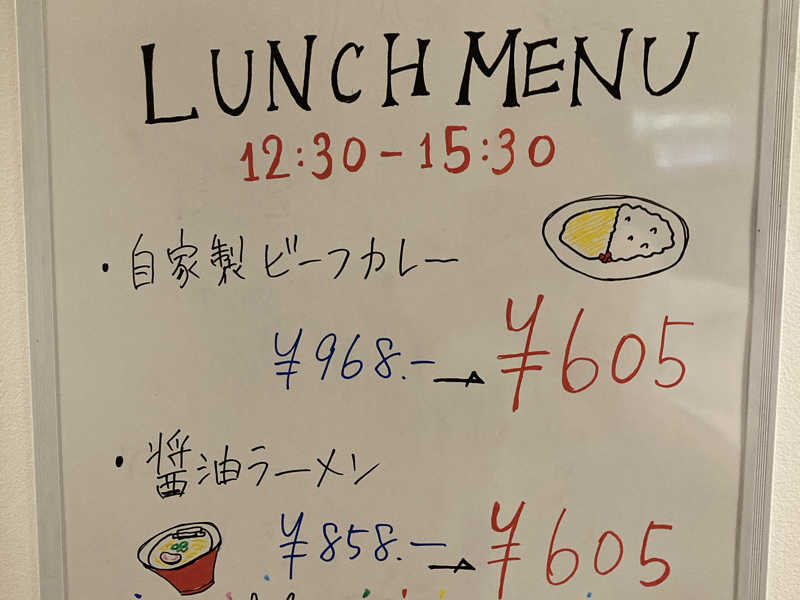 LUNCH MENU
12:30-15:30
・自家製ビーフカレー
¥968.- → ¥605
・醤油ラーメン
¥858.- → ¥605